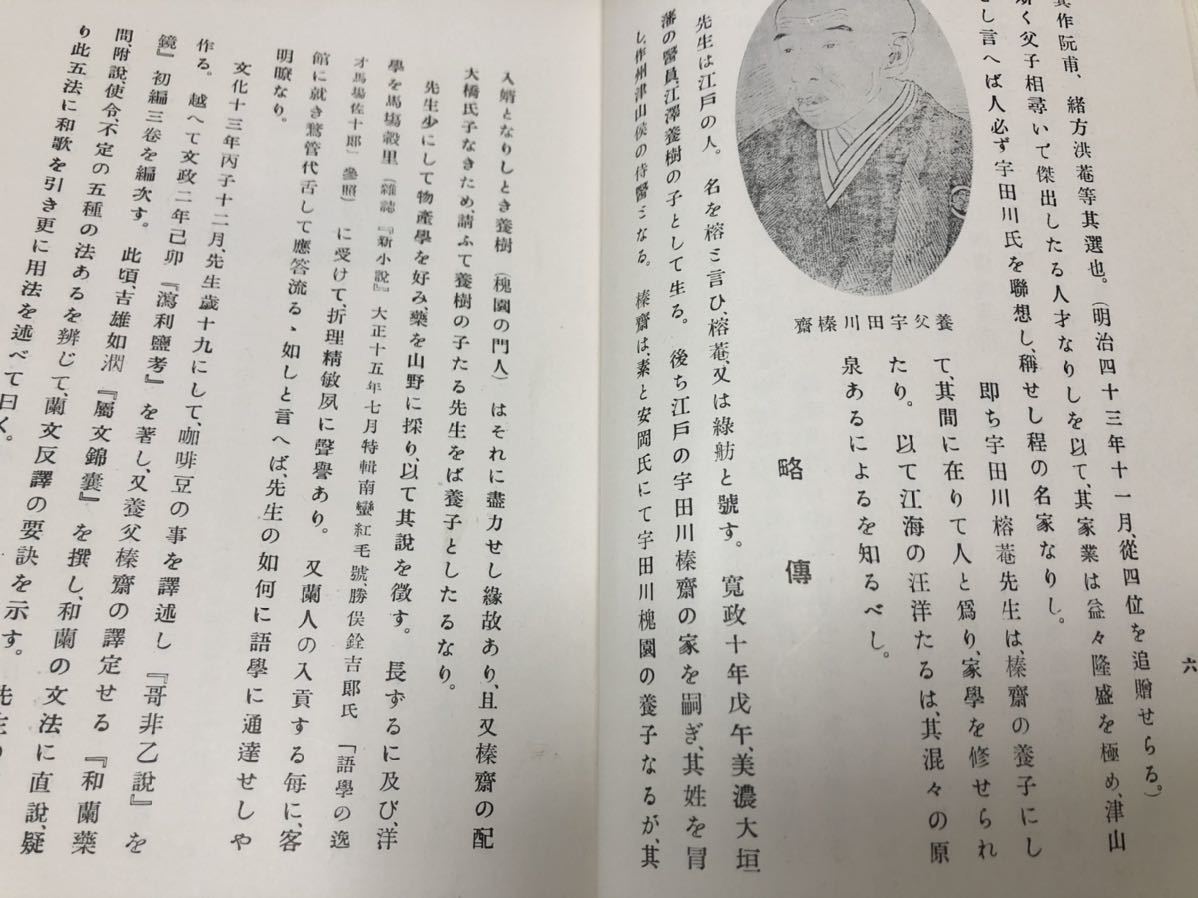 箕作阮甫、緒方洪菴等其選也。(明治四十三年十一月、從四位を追贈せらる。)
斯く父子相尋いて傑出したる人才なりしを以て、其家業は益々隆盛を極め、津山
さし言へば人必ず宇田川氏を聯想し、稱せし程の名家なりし。
卽ち宇田川榕菴先生は、榛齋の養子にし
て、其間に在りて人と爲り、家學を修せられ
たり。以て江海の汪洋たるは、其混々の原
泉あるによるを知るべし。
養父宇田川榛齋
略傳
先生は江戸の人。名を榕ミ言ひ、榕菴、又は綠舫と號す。寬政十年戊午、美濃大垣
藩の醫員、江澤養樹の子として生る。後ち江戸の宇田川榛齋の家を嗣ぎ、其姓を冒
し、作州津山侯の侍醫ミなる。榛齋は、素と安岡氏にて宇田川槐園の養子なるが、其
六
入婿となりしとき養樹(槐園の門人)はそれに盡力せし緣故あり、且又榛齋の配
大橋氏子なきため請ふて養樹の子たる先生をば養子としたるなり。
先生少にして物產學を好み、藥を山野に採り、以て其說を徵す。長ずるに及び、洋
學を馬塲穀里(雜誌『新小說』大正十五年七月特輯南蠻紅毛號、勝俣銓吉郎氏「語學の逸
才馬塲佐十郎」參照)に受けて、折理精敏夙に聲譽あり。又蘭人の入貢する每に、客
館に就き鶩管代舌して應答流るゝ如しと言へば、先生の如何に語學に通達せしや
明瞭なり。
文化十三年丙子十二月、先生歲十九にして、咖啡豆の事を譯述し『哥非乙說』を
作る。越へて文政二年己卯『瀉利鹽考』を著し、又養父榛齋の譯定せる『和蘭藥
鏡』初編三卷を編次す。此頃、吉雄如淵『屬文錦囊』を撰し、和蘭の文法に直說、疑
問、附說、使令、不定の五種の法あるを辨じて、蘭文反譯の要訣を示す。先生
り此五法に和歌を引き更に用法を述べて曰く。